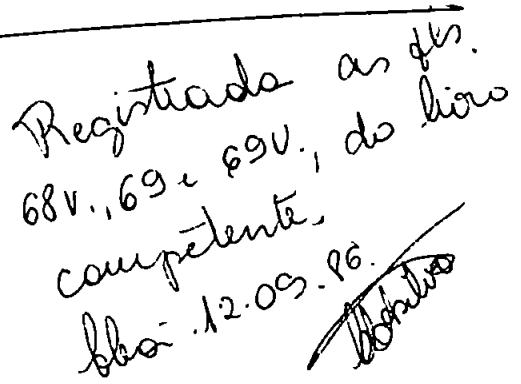 Registrada as fls.
68V., 69 e 69V., do livro
competente,
12.09.86.